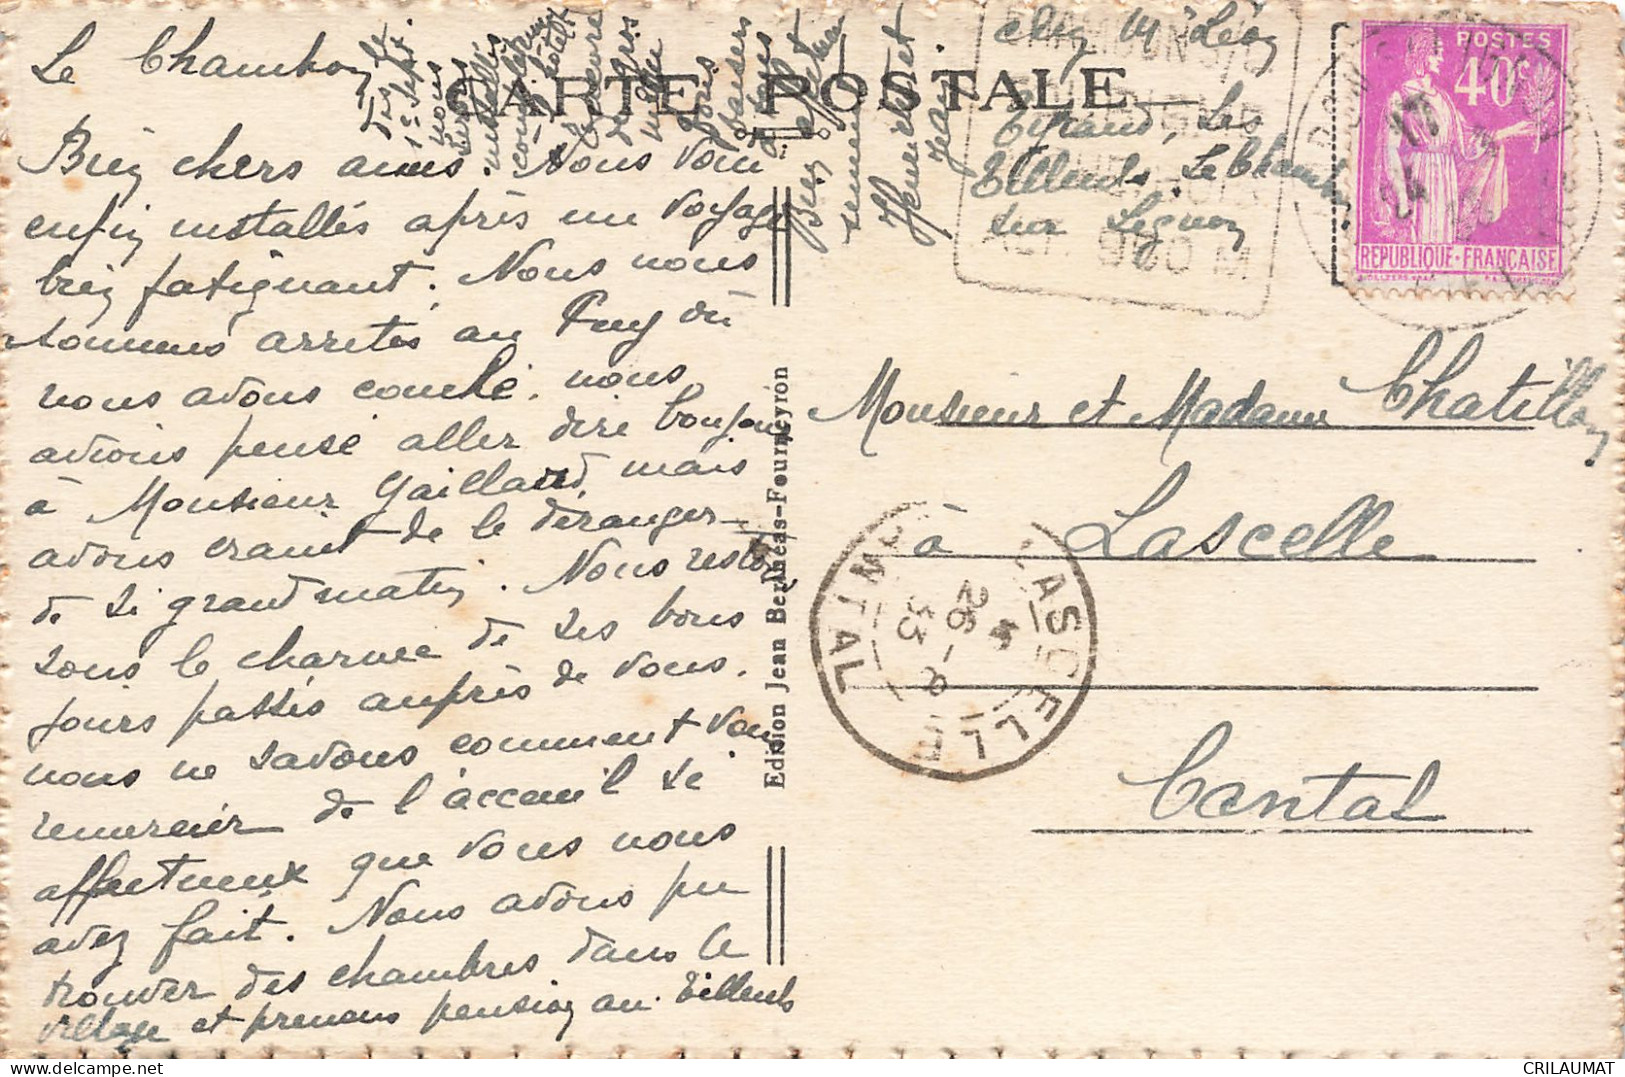 Le Chambon
Bien chers amis. Nous voici
enfin installés après un voyage
bien fatigant. Nous nous
sommes arretés au Puy où
nous avons couché. nous
avions pensé aller dire bonjour
à Monsieur Gaillard, mais
avons craint de le déranger
de si grand matin. Nous restons
sous le charme de ses bons
jours passés auprès de vous.
nous ne savons comment vous
remercier de l'accueil si
affectueux que vous nous
avez fait. Nous avons pu
trouver des chambres dans le
village et prenons pension au Tilleuls
dès le
1er Sept.
nous
serons
installés
à l'hotel
CARTE POSTALE
Bien
Henriette et
Jean.
chez Mr Léon
Eyraud, Les
Tilleuls. Le Chambon
sur Lignon
POSTES
40c
REPUBLIQUE-FRANÇAISE
17
24
Edition Jean Berthéas-Fourneyron
Monsieur et Madame Chatillon
à Lascelle
Cantal
LASCELLE
CANTAL
26-8
33
CRILAUMAT